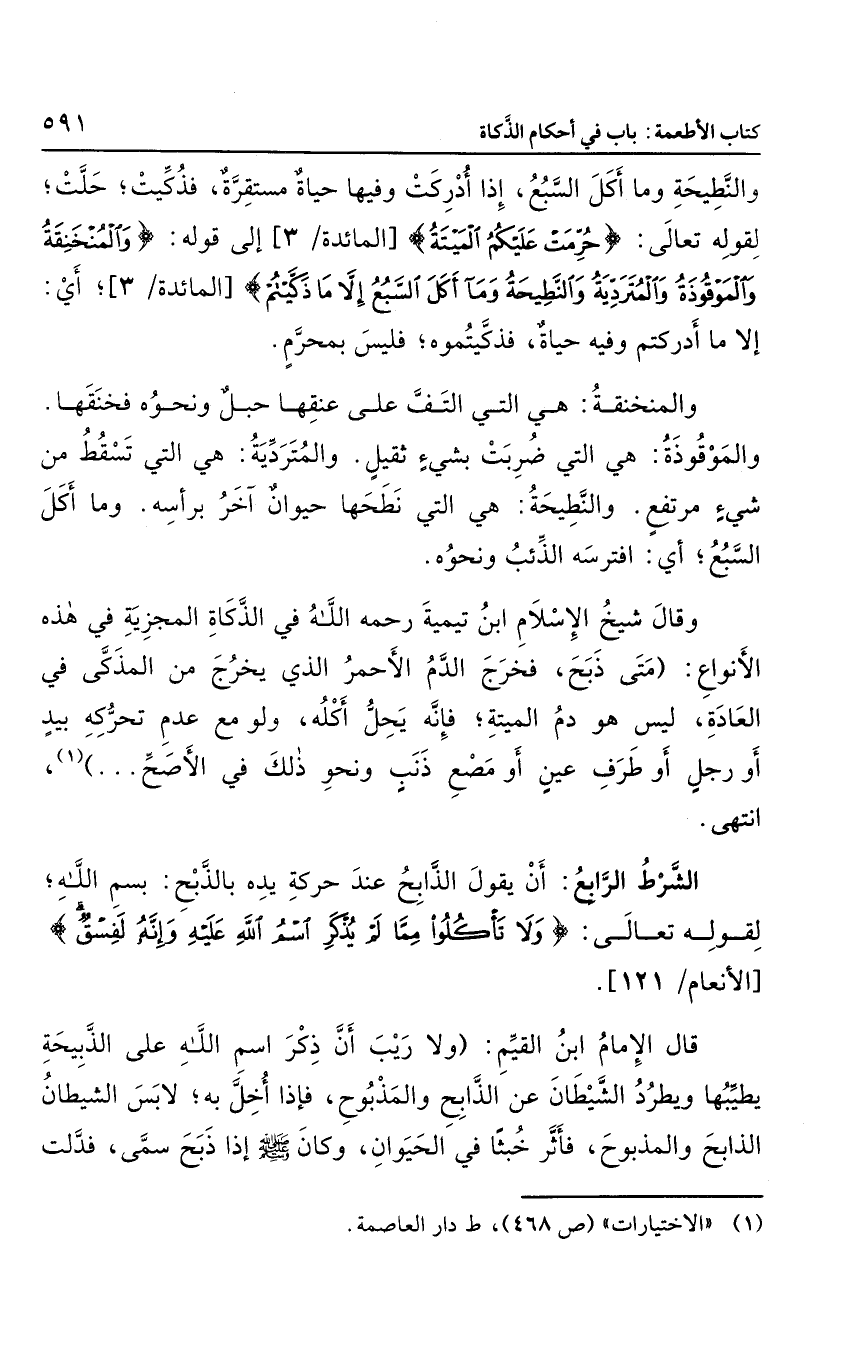 كتاب الأطعمة: باب في أحكام الذَّكاة ٥٩١
والنَّطِيحَةِ وما أَكَلَ السَّبُعُ، إِذا أُدْرِكَتْ وفيها حياةٌ مستقِرَّةٌ، فذُكِّيتْ؛ حَلَّتْ؛
لِقولِه تعالَى: ﴿حُرِّمَتْ عَلَيْكُمُ ٱلْمَيْتَةُ﴾ [المائدة/ ٣] إلى قوله: ﴿وَٱلْمُنْخَنِقَةُ
وَٱلْمَوْقُوذَةُ وَٱلْمُتَرَدِّيَةُ وَٱلنَّطِيحَةُ وَمَآ أَكَلَ ٱلسَّبُعُ إِلَّا مَا ذَكَّيْتُمْ﴾ [المائدة/ ٣]؛ أَيْ:
إلا ما أَدركتم وفيه حياةٌ، فذكَّيتُموه؛ فليسَ بمحرَّمٍ.
والمنخنقةُ: هي التي التَفَّ على عنقِها حبلٌ ونحوُه فخنَقَها.
والمَوْقُوذَةُ: هي التي ضُرِبَتْ بشيءٍ ثقيلٍ. والمُتَرَدِّيَةُ: هي التي تَسْقُطُ من
شيءٍ مرتفعٍ. والنَّطِيحَةُ: هي التي نَطَحَها حيوانٌ آخَرُ برأسِه. وما أَكَلَ
السَّبُعُ؛ أي: افترسَه الذِّئبُ ونحوُه.
وقالَ شيخُ الإِسْلَامِ ابنُ تيميةَ رحمه اللَّـهُ في الذَّكَاةِ المجزِيَةِ في هٰذه
الأَنواعِ: (مَتَى ذَبَحَ، فخرَجَ الدَّمُ الأَحمرُ الذي يخرُجَ من المذَكَّى في
العَادَةِ، ليس هو دمُ الميتةِ؛ فإِنَّه يَحِلُّ أَكْلُه، ولو مع عدمِ تحرُّكِهِ بيدٍ
أَو رجلٍ أَو طَرَفِ عينٍ أَو مَصْعِ ذَنَبٍ ونحوِ ذٰلكَ في الأَصَحِّ...)(١)،
انتهى.
الشَّرْطُ الرَّابِعُ: أَنْ يقولَ الذَّابِحُ عندَ حركةِ يدِه بالذَّبْحِ: بسمِ اللَّـهِ؛
لِقولِه تعالَى: ﴿وَلَا تَأْكُلُواْ مِمَّا لَمْ يُذْكَرِ ٱسْمُ ٱللَّهِ عَلَيْهِ وَإِنَّهُ لَفِسْقٌ﴾
[الأنعام/ ١٢١].
قال الإِمامُ ابنُ القيِّمِ: (ولا رَيْبَ أَنَّ ذِكْرَ اسمِ اللَّـهِ على الذَّبِيحَةِ
يطيِّبُها ويطرُدُ الشَّيْطَانَ عن الذَّابِحِ والمَذْبُوحِ، فإذا أُخِلَّ به؛ لابَسَ الشيطانُ
الذابحَ والمذبوحَ، فأَثَّر خُبثًا في الحَيَوانِ، وكانَ ﷺ إذا ذَبَحَ سمَّى، فدَّلت
(١) «الاختيارات» (ص ٤٦٨)، ط دار العاصمة.